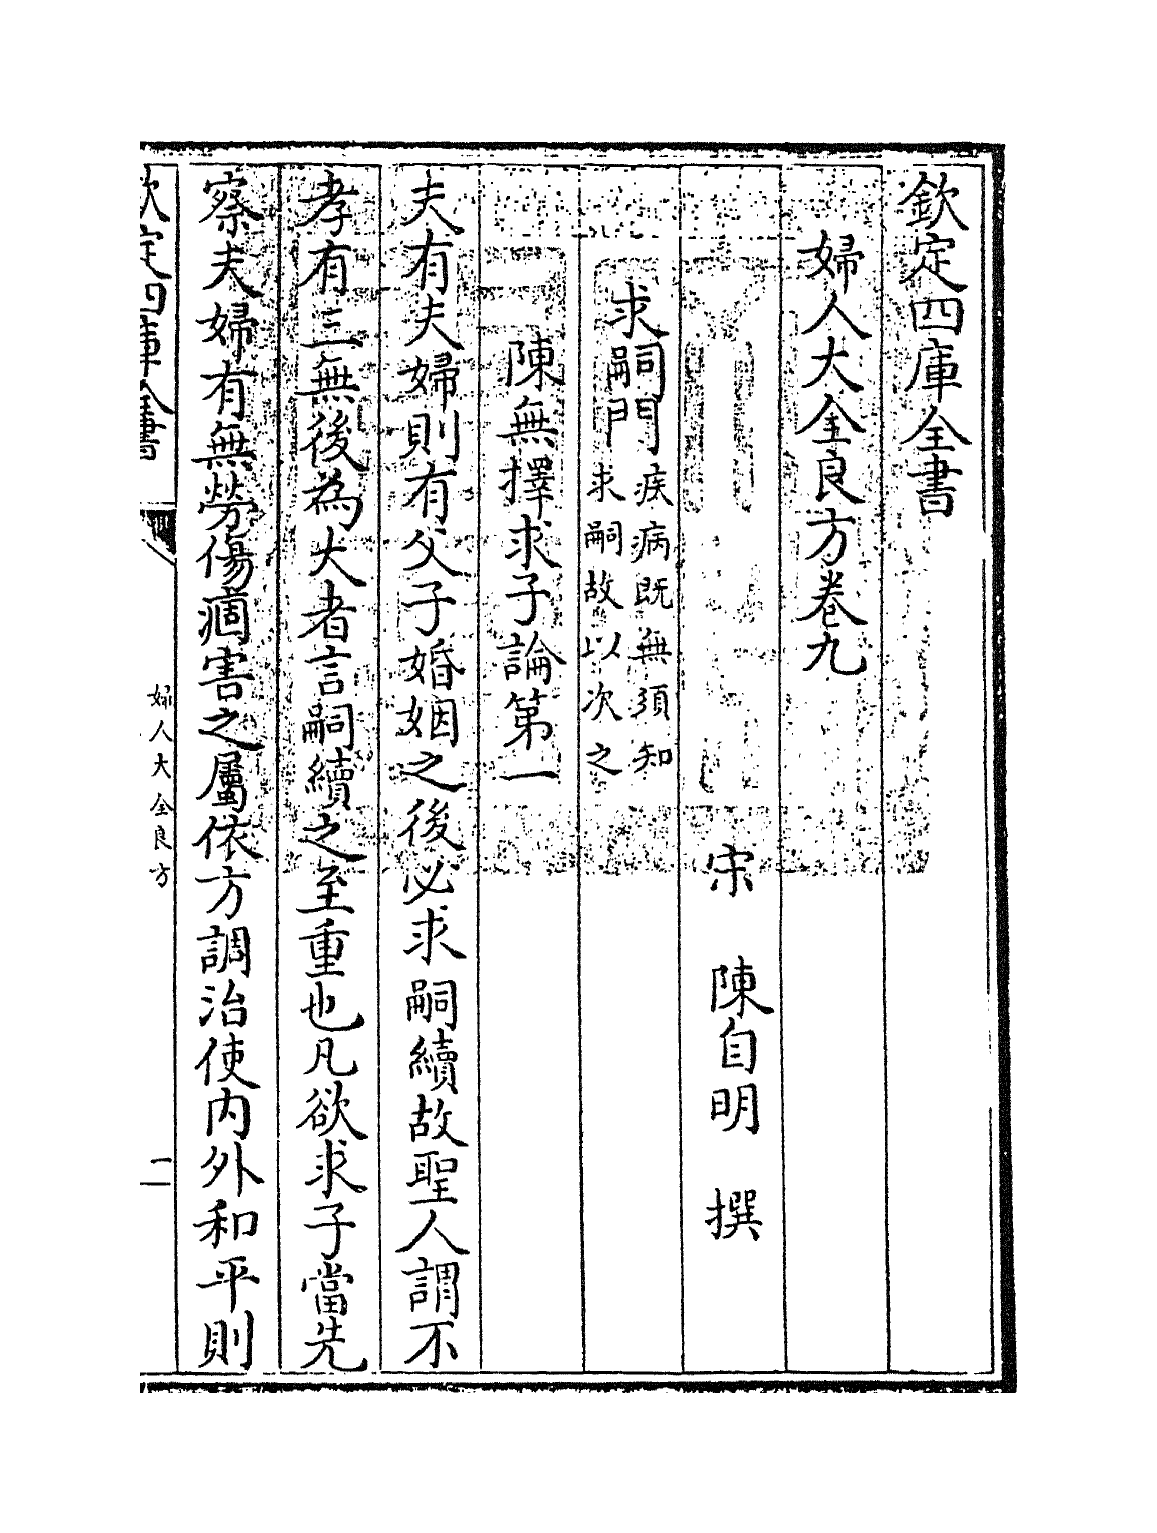 欽定四庫全書
婦人大全良方卷九
宋 陳自明 撰
求嗣門疾病既無須知求嗣故以次之
陳無擇求子論第一
夫有夫婦則有父子婚姻之後必求嗣續故聖人謂不
孝有三無後為大者言嗣續之至重也凡欲求子當先
察夫婦有無勞傷痼害之屬依方調治使内外和平則
欽定四庫全書
婦人大全良方
一